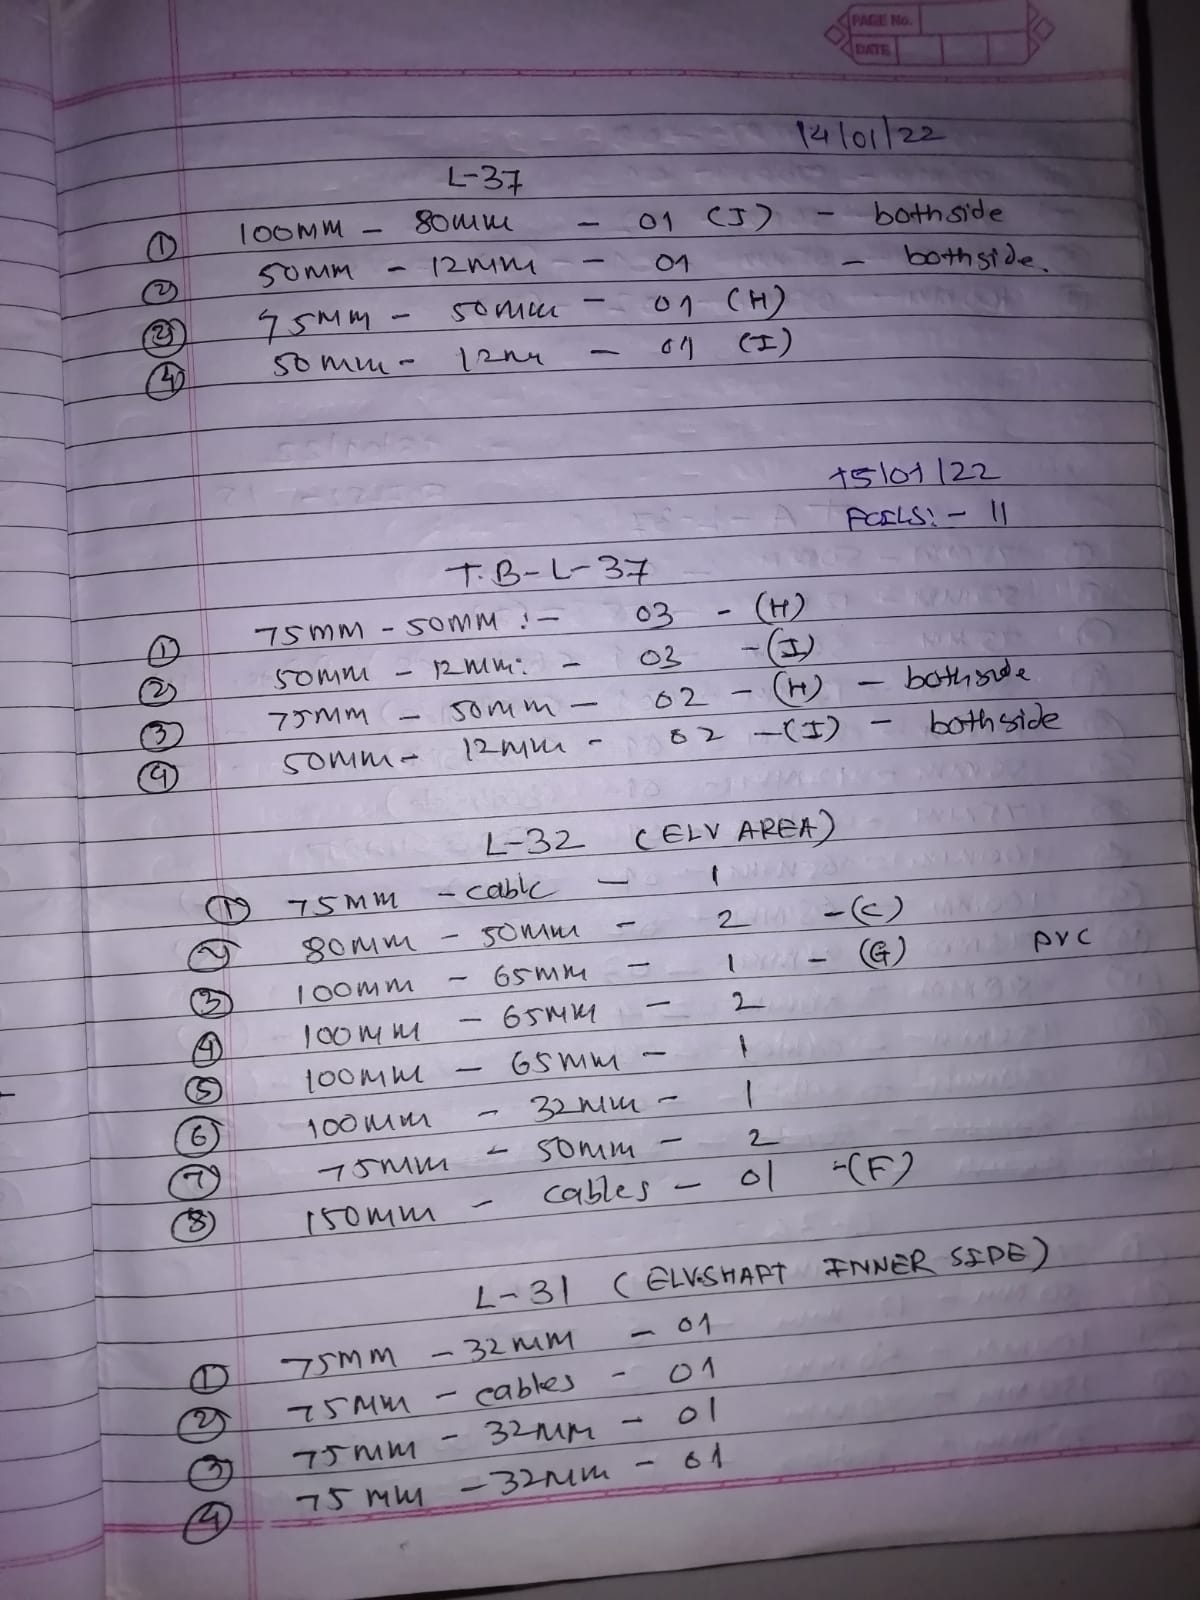 PAGE No.
DATE
14/01/22
L-37
① 100MM - 80mm - 01 (I) - bothside
② 50MM - 12MM - 01 - bothside.
③ 75MM - 50mm - 01 (H)
④ 50mm - 12m - 01 (I)
15/01/22
FOILS:- 11
T.B-L-37
① 75MM - 50MM :- 03 - (H)
② 50MM - 12MM: - 03 - (I)
③ 75MM - 50MM - 02 - (H) - bothside
④ 50MM - 12MM - 02 - (I) - bothside
L-32 (ELV AREA)
① 75MM - cable - 1
② 80MM - 50MM - 2 - (C)
③ 100MM - 65MM - 1 - (G) PVC
④ 100MM - 65MM - 2
⑤ 100MM - 65MM - 1
⑥ 100MM - 32MM - 1
⑦ 75MM - 50MM - 2
⑧ 150MM - cables - 01 - (F)
L-31 (ELV-SHAFT INNER SIDE)
① 75MM - 32MM - 01
② 75MM - cables - 01
③ 75MM - 32MM - 01
④ 75MM - 32MM - 01